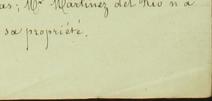 as; Mr Martinez del Rio n'a
sa propriété.